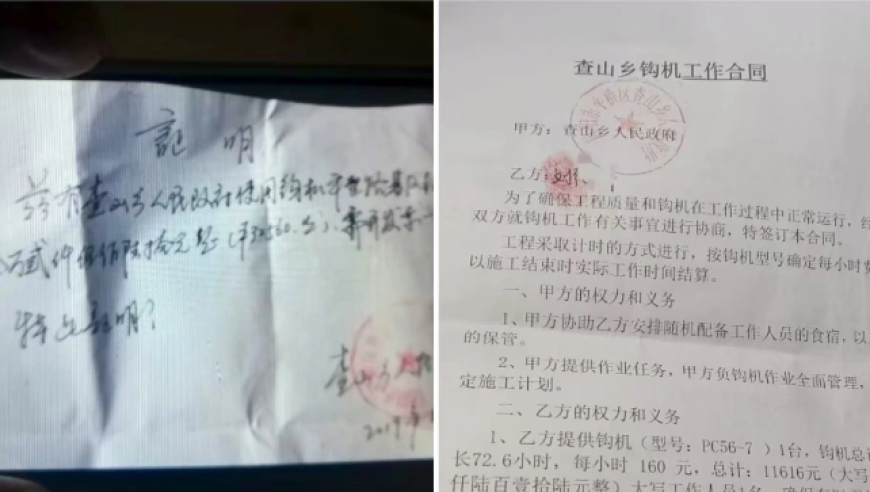 证明
兹有查山乡人民政府使用钩机
仟伍佰陆拾元整(￥32560.00),需开发票
特此证明!
查山乡
2019年
查山乡钩机工作合同
甲方:查山乡人民政府
乙方:
为了确保工程质量和钩机在工作过程中正常运行,经
双方就钩机工作有关事宜进行协商,特签订本合同。
工程采取计时的方式进行,按钩机型号确定每小时费
以施工结束时实际工作时间结算。
一、甲方的权力和义务
1、甲方协助乙方安排随机配备工作人员的食宿,以
的保管。
2、甲方提供作业任务,甲方负钩机作业全面管理,
定施工计划。
二、乙方的权力和义务
1、乙方提供钩机(型号:PC56-7 )1台,钩机总
长72.6小时,每小时 160 元,总计:11616元(大写
仟陆百壹拾陆元整)大写工作人员1名